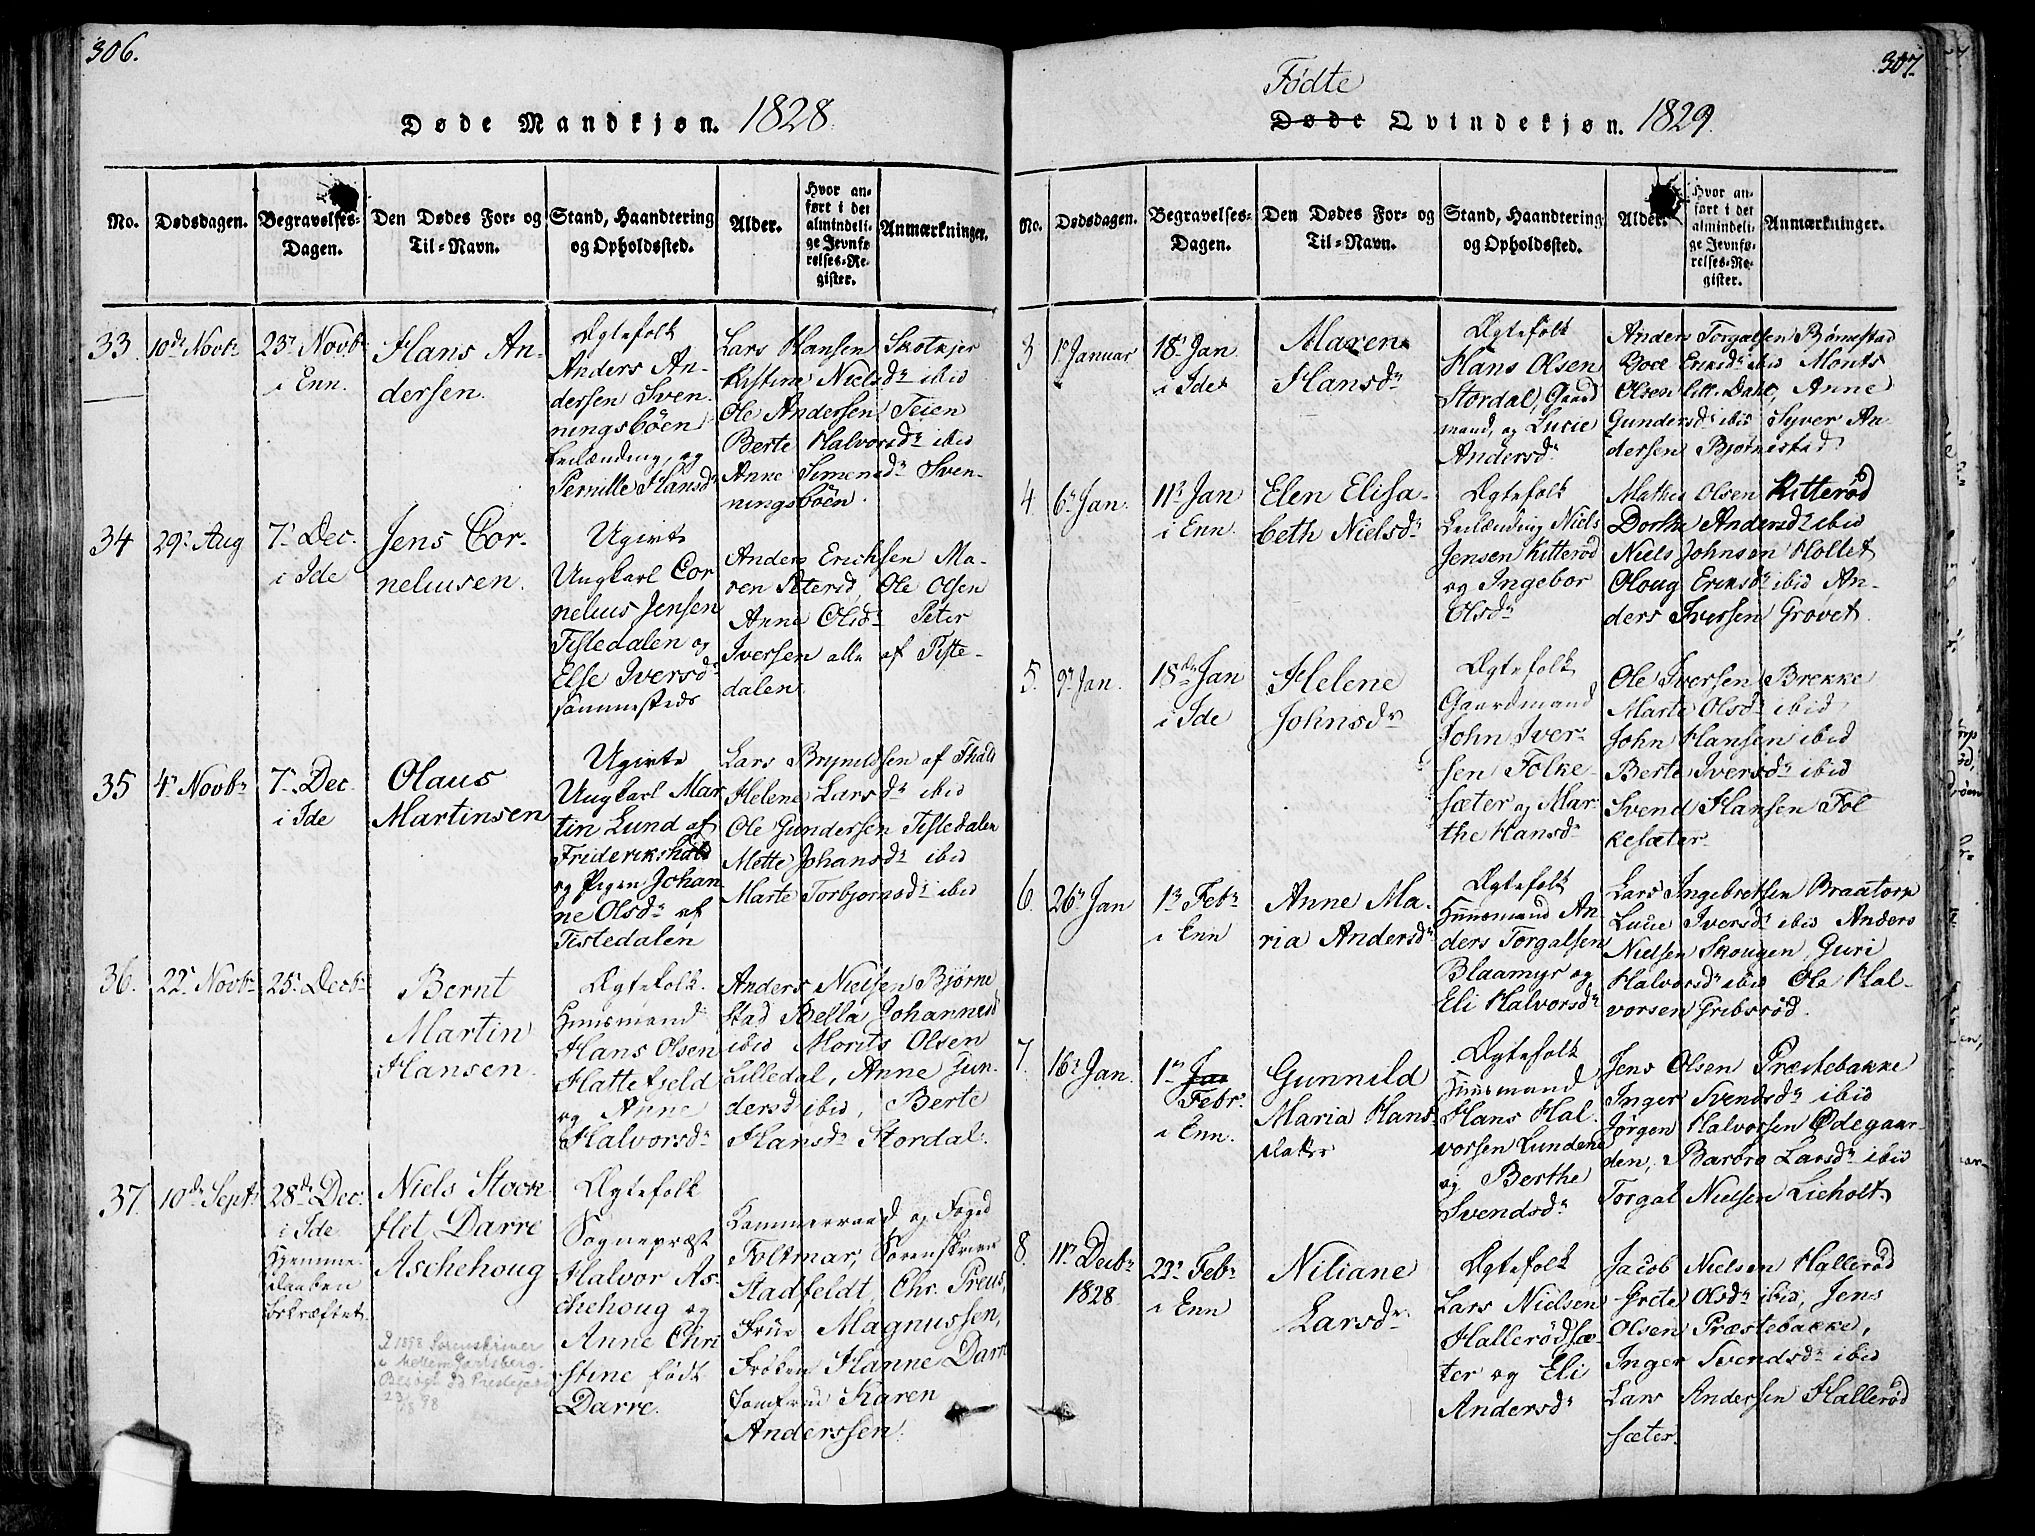 306.
Døde Mandkjøn. 1828.
No.
Dødsdagen.
Begravelses-
Dagen.
Den Dødes For- og
Til-Navn.
Stand, Haandtering
og Opholdssted.
Alder.
Hvor an-
ført i det
almindeli-
ge Jevnfø-
relses-Re-
gister.
Anmærkninger.
33.
10de Novbr
23r Novbr
i Enn.
Hans An-
dersen.
Ægtefolk
Anders An-
dersen Sven-
ningsböen
og
Pernille Hansdr
Lars Hansen Skotejer
Kistine Nielsdr ibid
Ole Andersen Teien
Berte Halvorsdr ibid
Anne Simensdr Sven-
ningsböen.
34
29r Aug
7r Dec.
i Ide
Jens Cor-
neliusen.
Ugivte
Ungkarl Cor
nelius Jensen
Tistedalen og
Else Iversdr
sammesteds
Anders Erichsen Ma-
ren Peterid, Ole Olsen
Anne Olsdr Peter
Iversen alle af Tiste-
dalen.
35
4r Novbr
7r Dec.
i Ide
Olaus
Martinsen
Ugivte
Ungkarl Mar
tin Lund af
Frideriekshald
og Pigen Johan
ne Olsdr af
Tistedalen
Lars Brynildsen af Fhald
Helene Larsdr ibid
Ole Gundersen Tistedalen
Mette Johansdr ibid
Marte Torbjornsdr ibid
36.
22r Novbr
25r Decbr
Bernt
Martin
Hansen.
Ægtefolk.
Huusmand
Hans Olsen
Hattefjeld
og Anne
Halvorsdr
Anders Nielsen Bjørne
stad Bella Johannesd
ibid Morits Olsen
Lilledal, Anne Gun-
dersd ibid, Berte
Hansdr Stordal.
37.
10de Sept.
28de Dec.
i Ide
Hjemme-
daaben
bekræftet.
Niels Stock
flet Darre
Aschehoug
Ægtefolk
Sognepræst
Halvor As-
chehoug og
Anne Chri
stine födt
Darre.
Kammerraad og Foged
Foltmar, Sorenskriver
Stadfeldt, Chr. Preus,
Frue Magnussen,
Fröken Hanne Darre
Jomfrue Karen
Anderssen.
1898 Sorenskriver
Jarlsberg.
307.
Födte
Døde Qvindekjøn. 1829.
No.
Dødsdagen.
Begravelses-
Dagen.
Den Dødes For- og
Til-Navn.
Stand, Haandtering
og Opholdssted.
Alder.
Hvor an-
ført i det
almindeli-
ge Jevnfø-
relses-Re-
gister.
Anmærkninger.
3
1r Januar
18r Jan
i Ide
Maren
Hansdr
Ægtefolk
Hans Olsen
Stordal, Gaard
mand, og Lucie
Andersdr
Anders Torgalsen Björnestad
Boel Eriksdr ibid Morits
Olsen Lill. Dahl, Anne
Gundersdr ibid Syver An
dersen Bjørnestad
4
6r Jan.
11r Jan
i Enn.
Elen Elisa-
beth Nielsdr
Ægtefolk
Niels
Jensen Kitteröd
og Ingebor
Olsdr
Mathis Olsen Kitteröd
Dorthe Andersdr ibid
Niels Johnsen Hollet
Oloug Eriksdr ibid An-
ders Iversen Grovet.
5.
9r Jan.
18de Jan
i Ide
Helene
Johnsdr
Ægtefolk
Gaardmand
John Iver-
sen Folke-
sæter og Mar-
the Hansdr
Ole Iversen Brekke
Marte Olsdr ibid
John Hansen ibid
Berte Iversdr ibid
Svend Hansen Fol
kesæter
6.
26r Jan
1r Febr
i Enn
Anne Ma-
ria Andersdr
Ægtefolk
Huusmand An-
ders Torgalsen
Blaamyr og
Eli Halvorsdr
Lars Ingebretsen Braatorp
Lucie Iversdr ibid Anders
Nielsen Skougen, Guri
Halvorsdr ibid Ole Hal-
vorsen Gribsröd.
7.
16r Jan.
1r Jan
Febr.
i Enn.
Gunnild
Maria Hans
datter
Ægtefolk
Huusmand
Hans Hal
vorsen Lundene
og Berthe
Svendsdr
Jens Olsen Præstebakke
Inger Svendsdr ibid
Jørgen Halvorsen Ødegaar-
den, Barbro Larsdr ibid
Torgal Nielsen Lieholt.
8.
11r Decbr
1828
22r Febr
i Enn
Niliane
Larsdr.
Ægtefolk
Lars Nielsen
Halleröd sæ-
ter og Eli
Andersdr
Jacob Nielsen Halleröd
Grete Olsdr ibid, Jens
Olsen Præstebakke,
Inger Svendsdr ibid
Lars Andersen Halleröd
sæter.